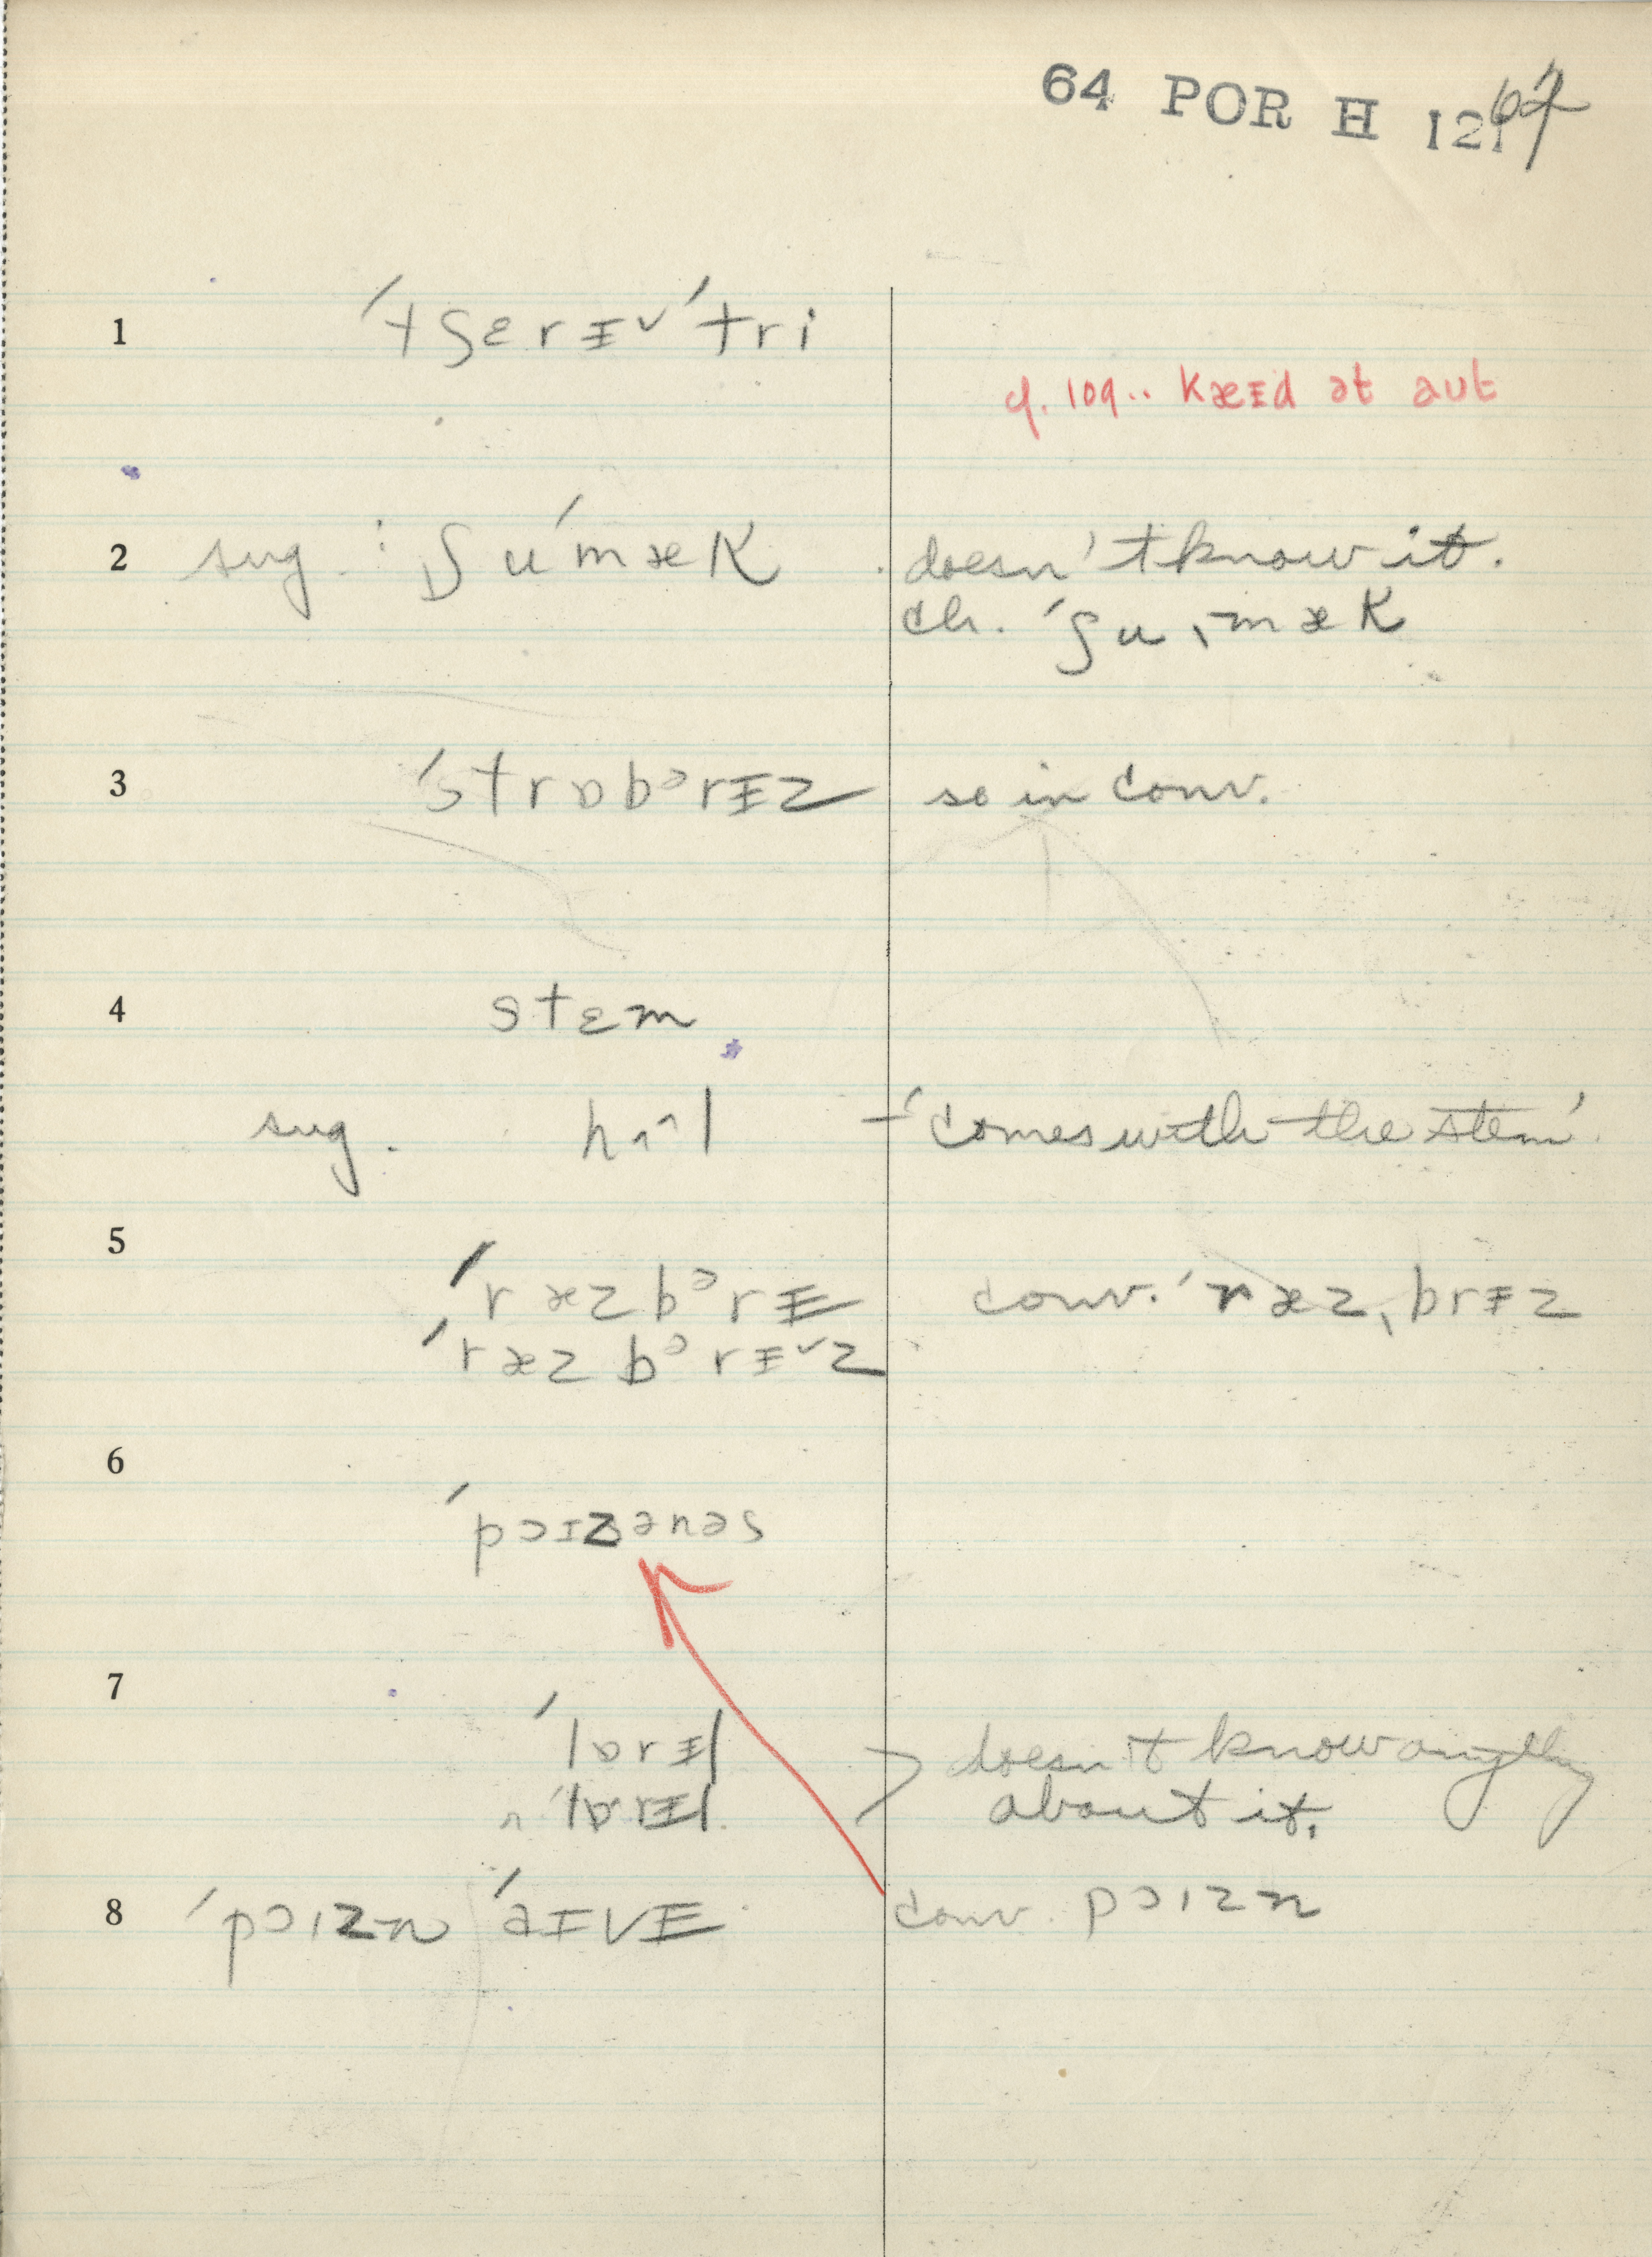 64 POR H 12
1 ˈtʃɛrɪ˅ ˈtri
cf. 109.. kæɪd ət aut
2 sug. : ʃuˈmæk doesn't know it.
ch. ˈʃuˌmæk
3 ˈstrɒbᵊrɪz so in conv.
4 stɛm
sug. hʌl – 'comes with the stem'.
5 ˈræzbᵊrɪ conv. ˈræzˌbrɪz
ˈræzbᵊrɪ˅z
6 ˈpɔɪzənəs
7 ˈlɒrɪl doesn't know anything
ˈlɒrɪl about it.
8 ˈpɔɪzn ˈaɪvɪ conv. pɔɪzn